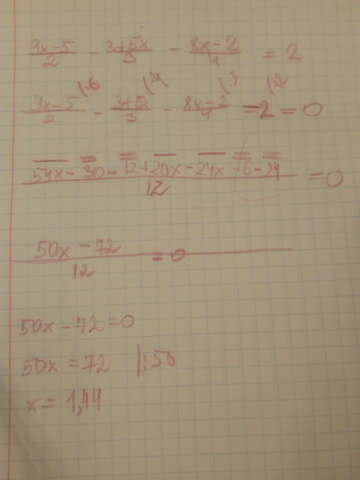 9x-5/2 - 3+5x/3 - 8x-2/4 = 2
9x-5/2 |·6 - 3+5x/3 |·4 - 8x-2/4 |·3 -2 |·12 = 0
54x-30-12+20x-24x-6-24/12 = 0
50x-72/12 = 0
50x-72=0
50x=72 |:50
x=1,44